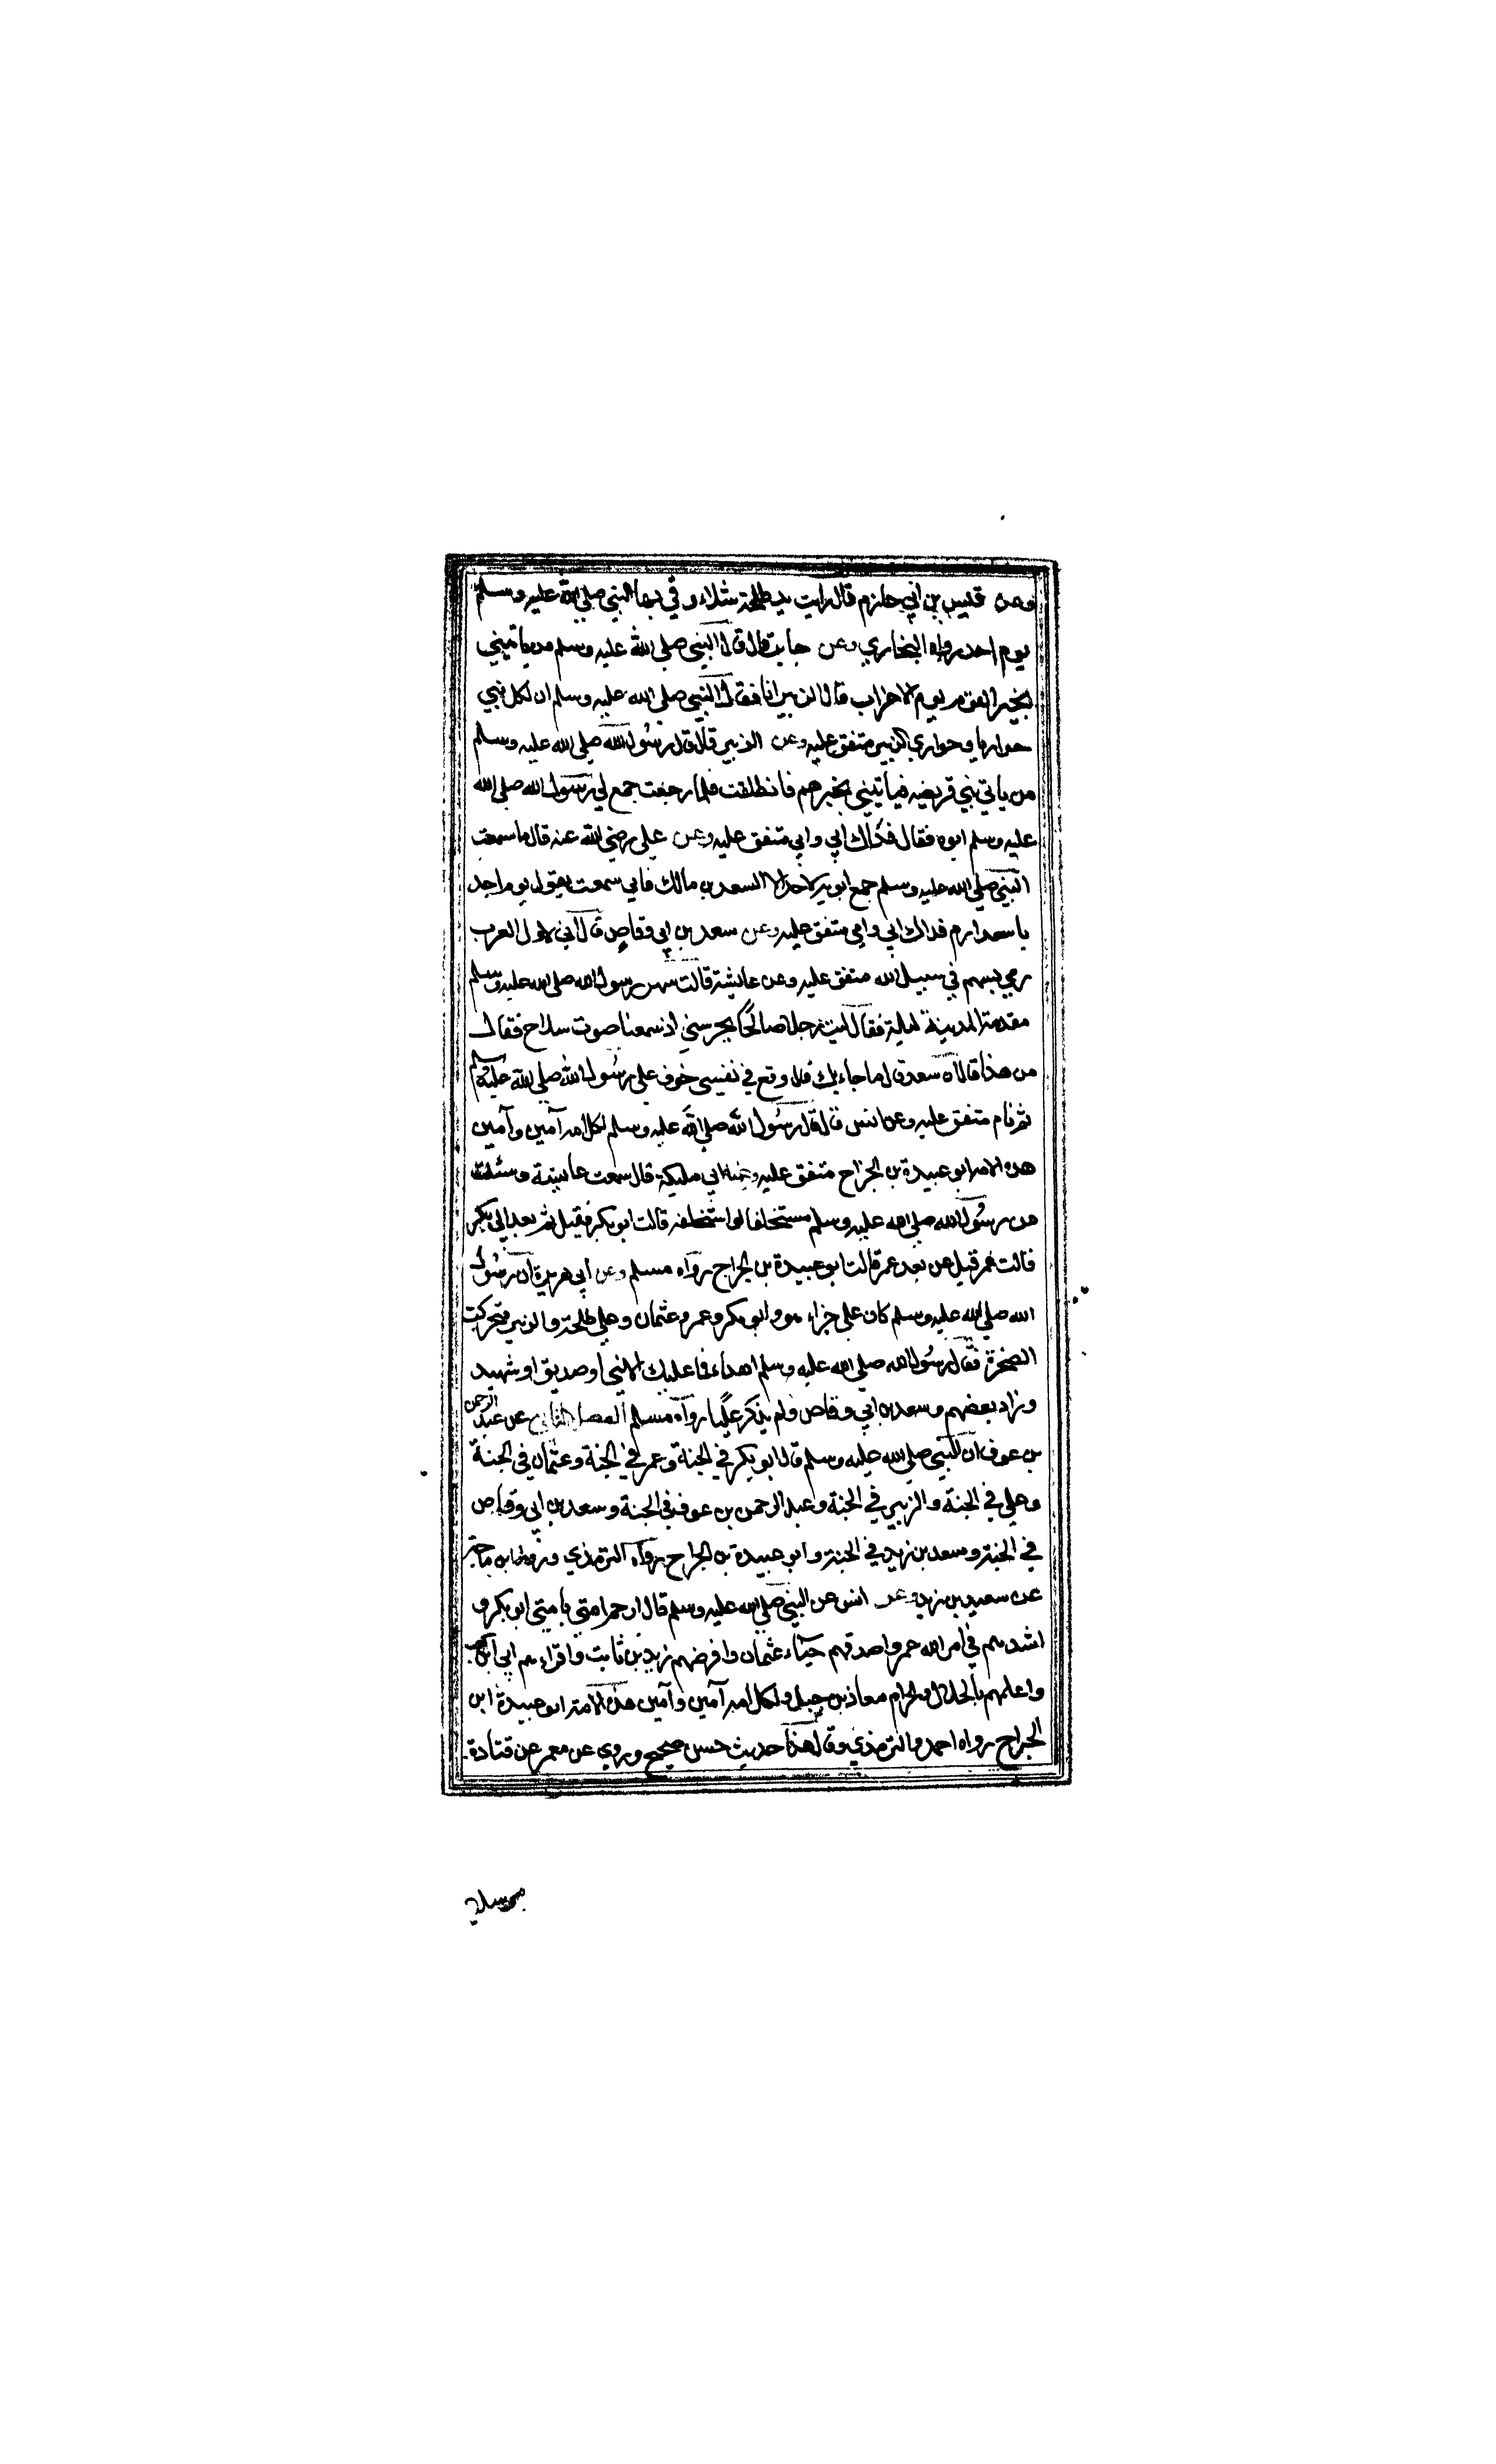 وعن قيس بن ابي حازم قال رايت يد طلحة شلاء وقي بها النبي صلى الله عليه وسلم
يوم احد رواه البخاري وعن جابر قال قال النبي صلى الله عليه وسلم من ياتيني
بخبر القوم يوم الاحزاب قال الزبير انا فقال النبي صلى الله عليه وسلم ان لكل نبي
حواريا وحواري الزبير متفق عليه وعن الزبير قال قال رسول الله صلى الله عليه وسلم
من ياتي بني قريضه فياتيني بخبرهم فانطلقت فلما رجعت جمع لي رسول الله صلى الله
عليه وسلم ابويه فقال فداك ابي وامي متفق عليه وعن علي رضي الله عنه قال ما سمعت
النبي صلى الله عليه وسلم جمع ابويه لاحد الا لسعد بن مالك فاني سمعت يقول يوم احد
يا سعد ارم فداك ابي وامي متفق عليه وعن سعد بن ابي وقاص قال اني لاول العرب
رمي بسهم في سبيل الله متفق عليه وعن عايشة قالت سهر رسول الله صلى الله عليه وسلم
مقدمه المدينة ليلة فقال ليت رجلا صالحا يحرسني اذ سمعنا صوت سلاح فقال
من هذا قال انا سعد قال ما جاء بك قال وقع في نفسي خوف على رسول الله صلى الله عليه وسلم
ثم نام متفق عليه وعن انس قال قال رسول الله صلى الله عليه وسلم لكل امة آمين وآمين
هذه الامة ابو عبيدة بن الجراح متفق عليه وعن ابي مليكة قال سمعت عايشة وسئلت
من رسول الله صلى الله عليه وسلم مستخلفا لو استخلفه قالت ابو بكر فقيل ثم بعد ابي بكر
قالت عمر قيل من بعد عمر قالت ابو عبيدة بن الجراح رواه مسلم وعن ابي هريرة ان رسول
الله صلى الله عليه وسلم كان على حراء هو وابو بكر وعمر وعثمان وعلي وطلحة والزبير فتحركت
الصخرة فقال رسول الله صلى الله عليه وسلم اهداء فما عليك الا نبي او صديق او شهيد
وزاد بعضهم وسعد بن ابي وقاص ولم يذكر عليا رواه مسلم الفصل الثاني عن عبد الرحمن
بن عوف ان النبي صلى الله عليه وسلم قال ابو بكر في الجنة وعمر في الجنة وعثمان في الجنة
وعلي في الجنة والزبير في الجنة وعبد الرحمن بن عوف في الجنة وسعد بن ابي وقاص
في الجنة وسعد بن زيد في الجنة وابو عبيدة بن الجراح رواه الترمذي ورواه ابن ماجة
عن سعيد بن زيد وعن انس عن النبي صلى الله عليه وسلم قال ارحم امتي بامتي ابو بكر و
اشدهم في امر الله عمر واصدقهم حياء عثمان وافرضهم زيد بن ثابت واقراءهم ابي ابن كعب
واعلمهم بالحلال والحرام معاذ بن جبل ولكل امة آمين وآمين هذه الامة ابو عبيدة ابن
الجراح رواه احمد والترمذي وقال هذا حديث حسن صحيح وروي عن معمر عن قتادة